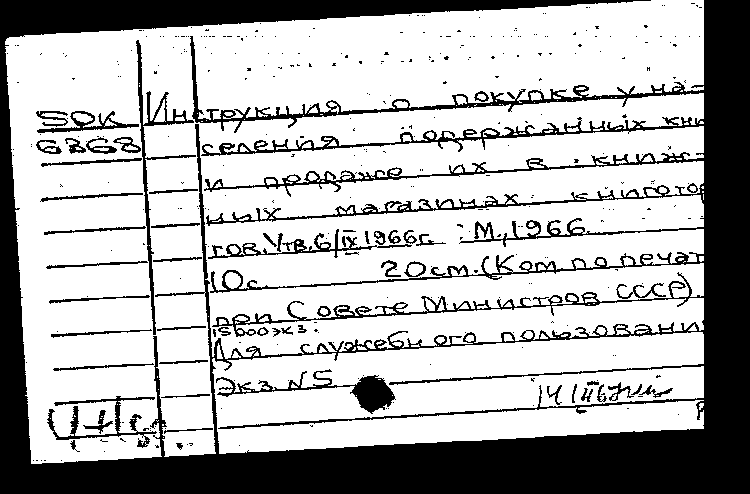 SOK Инструкция о покупке у на-
6868 селения подержанных кни
и продаже их в книж-
ных магазинах книготор
гов. Утв. 6/IX 1966г. : М., 1966
10с. 20см. (Ком. по печат
при Совете Министров СССР).
15000экз.
Для служебного пользования
Экз. N5
14 III